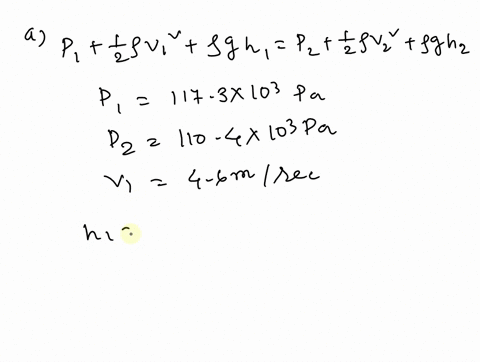 a) P₁ + ½ρv₁² + ρgh₁ = P₂ + ½ρv₂² + ρgh₂
P₁ = 117.3×10³ Pa
P₂ = 110.4×10³ Pa
v₁ = 4.6m/sec
h₁ =